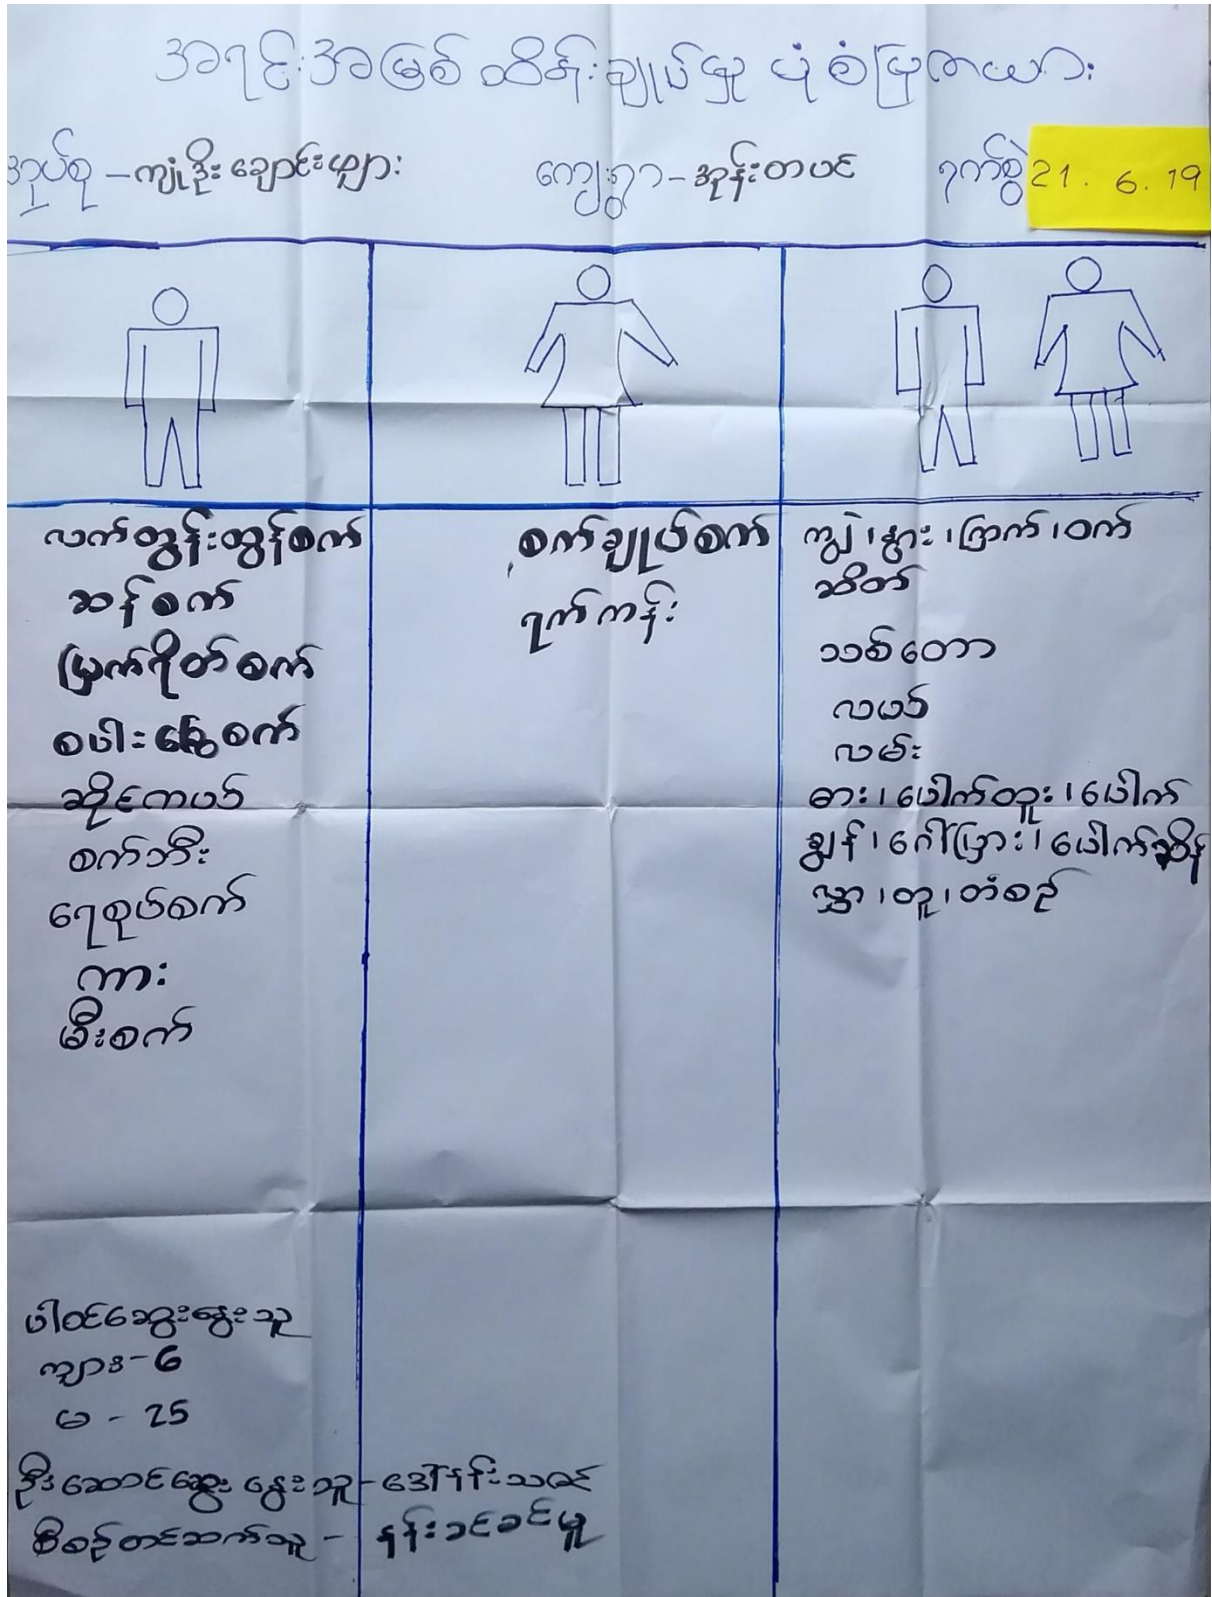 အရင်းအမြစ် ထိန်းချုပ်မှု ပုံစံပြဇယား
အုပ်စု - ကျုံဒိုးချောင်းဖျား ကျေးရွာ - အုန်းတပင် ရက်စွဲ 21. 6. 19
လက်တွန်းထွန်စက်
ဆန်စက်
မြက်ရိတ်စက်
စပါးခြွေစက်
ဆိုင်ကယ်
စက်ဘီး
ရေစုပ်စက်
ကား
မီးစက်
စက်ချုပ်စက်
ရက်ကန်း
ကျွဲ၊ နွား၊ ကြက်၊ ဝက်
ဆိတ်
သစ်တော
လယ်
လမ်း
ဓား၊ ပေါက်တူး၊ ပေါက်
ချွန်၊ ဂေါ်ပြား၊ ပေါက်ဆိန်
လွှ၊ တူ၊ တံစဉ်
ပါဝင်ဆွေးနွေးသူ
ကျား - 6
မ - 25
ဦးဆောင်ဆွေးနွေးသူ - ဒေါ်နန်း
စီစဉ်တင်ဆက်သူ - နန်းခင်ခင်မူ